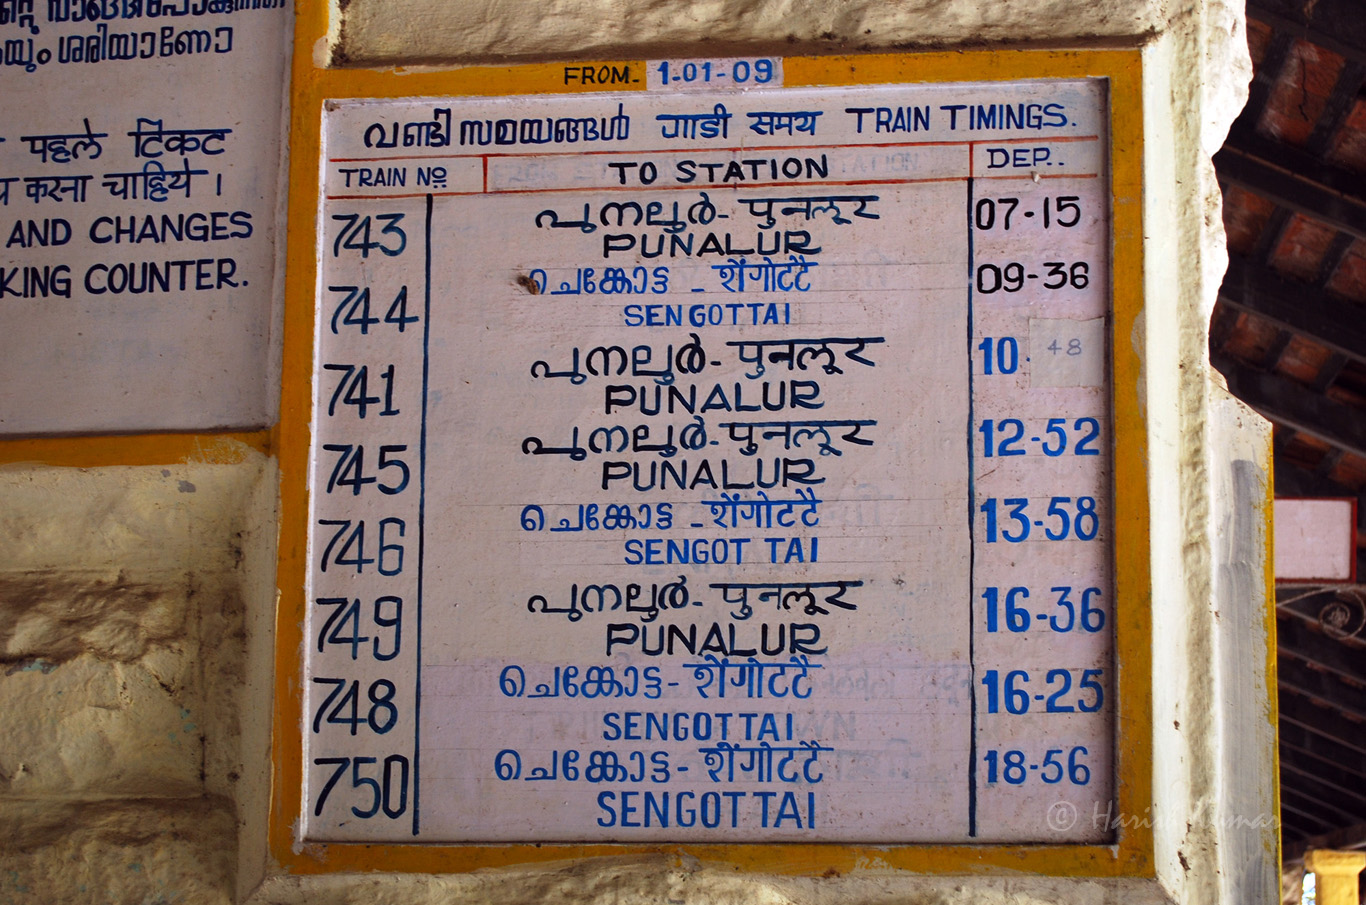 യും ശരിയാണോ
पहले टिकट
करना चाहिये ।
AND CHANGES
KING COUNTER.
FROM- 1-01-09
വണ്ടി സമയങ്ങൾ गाडी समय TRAIN TIMINGS.
TRAIN No TO STATION DEP..
743 പുനലൂർ- पुनलूर 07-15
PUNALUR
744 ചെങ്കോട്ട - शेंगोटटै 09-36
SENGOTTAI
741 പുനലൂർ- पुनलूर 10. 48
PUNALUR
745 പുനലൂർ- पुनलूर 12-52
PUNALUR
746 ചെങ്കോട്ട - शेंगोटटै 13-58
SENGOT TAI
749 പുനലൂർ- पुनलूर 16-36
PUNALUR
748 ചെങ്കോട്ട - शेंगोटटै 16-25
SENGOTTAI
750 ചെങ്കോട്ട - शेंगोटटै 18-56
SENGOTTAI
© Harish Kumar